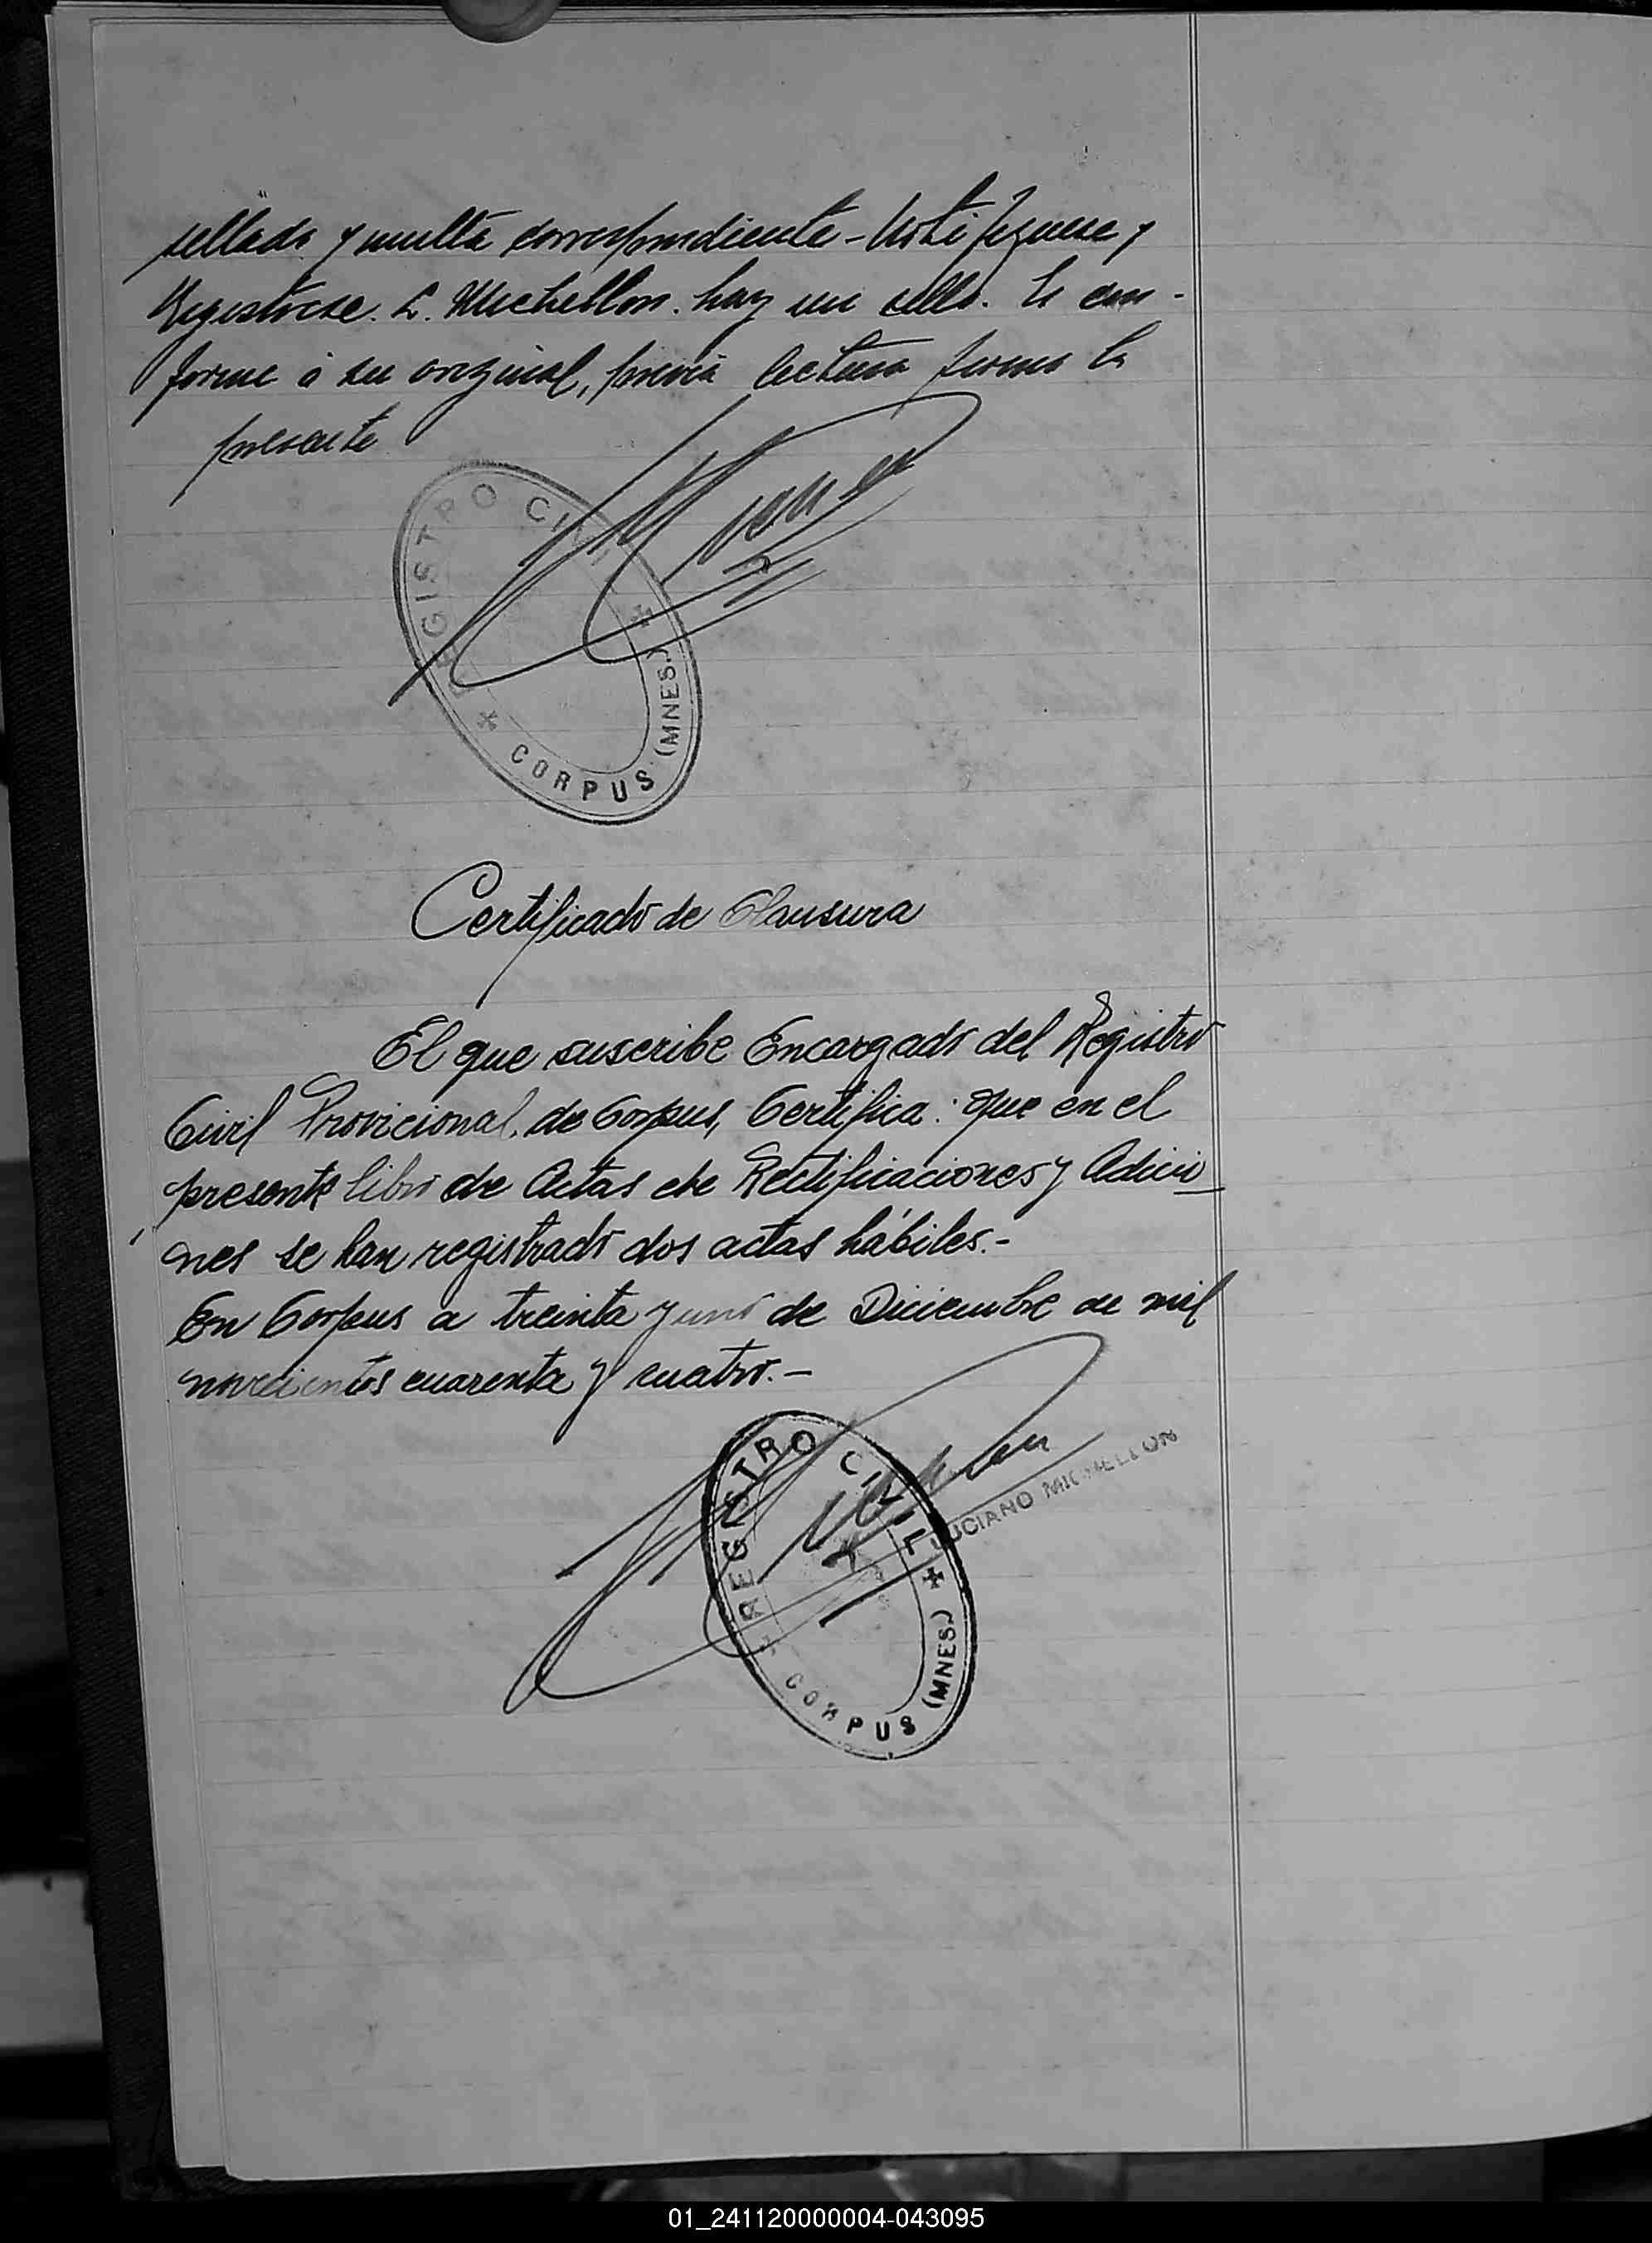 sellado y multa correspondiente - Notifíquese y
Regístrese. L. Michellon. hay un sello. Es con-
forme á su original, previa lectura firmo la
presente
REGISTRO CIVIL
CORPUS (MNES.)
Certificado de Clausura
El que suscribe Encargado del Registro
Civil Provicional, de Corpus, Certifica: que en el
presente libro de Actas de Rectificaciones y Adicio
nes se han registrado dos actas hábiles.-
En Corpus a treinta y uno de Diciembre de mil
novecientos cuarenta y cuatro.-
REGISTRO CIVIL
LUCIANO MICHELLON
CORPUS (MNES.)
01_241120000004-043095